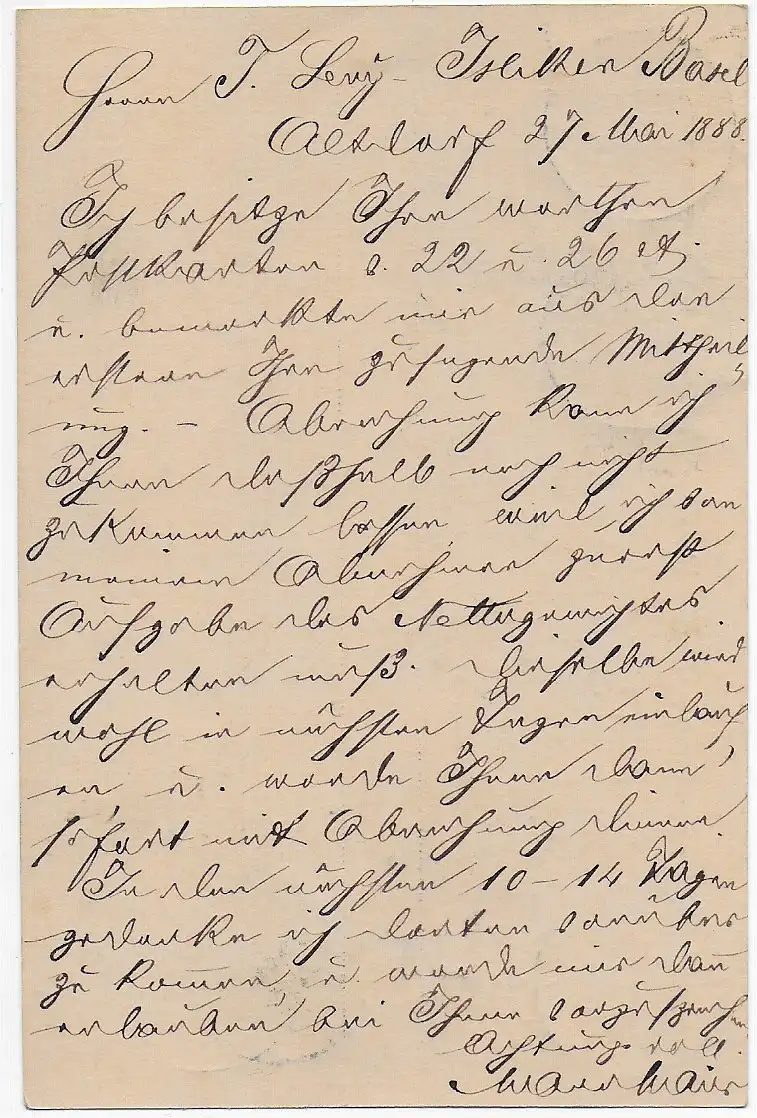 Herrn T. Levy-Isliker Basel
Altdorf 27 Mai 1888.
Ich besitze Ihre werthen
Postkarten v. 22 u. 26 ct.
u. bemerkte mir aus der
erstern Ihre zusagende Mittheil-
ung. – Abrechnung kann ich
Ihnen deßhalb noch nicht
zukommen lassen weil ich von
meinem Abnehmer zuerst
Aufgabe des Nettogewichtes
erhalten muß. Dieselbe wird
wohl in nächsten Tagen einlauf-
en u. werde Ihnen dann
sofort mit Abrechnung dienen.
In den nächsten 10–14 Tagen
gedenke ich dorten vorüber
zu kommen, u. werde mir dann
erlauben bei Ihnen vorzusprechen
Achtungsvoll